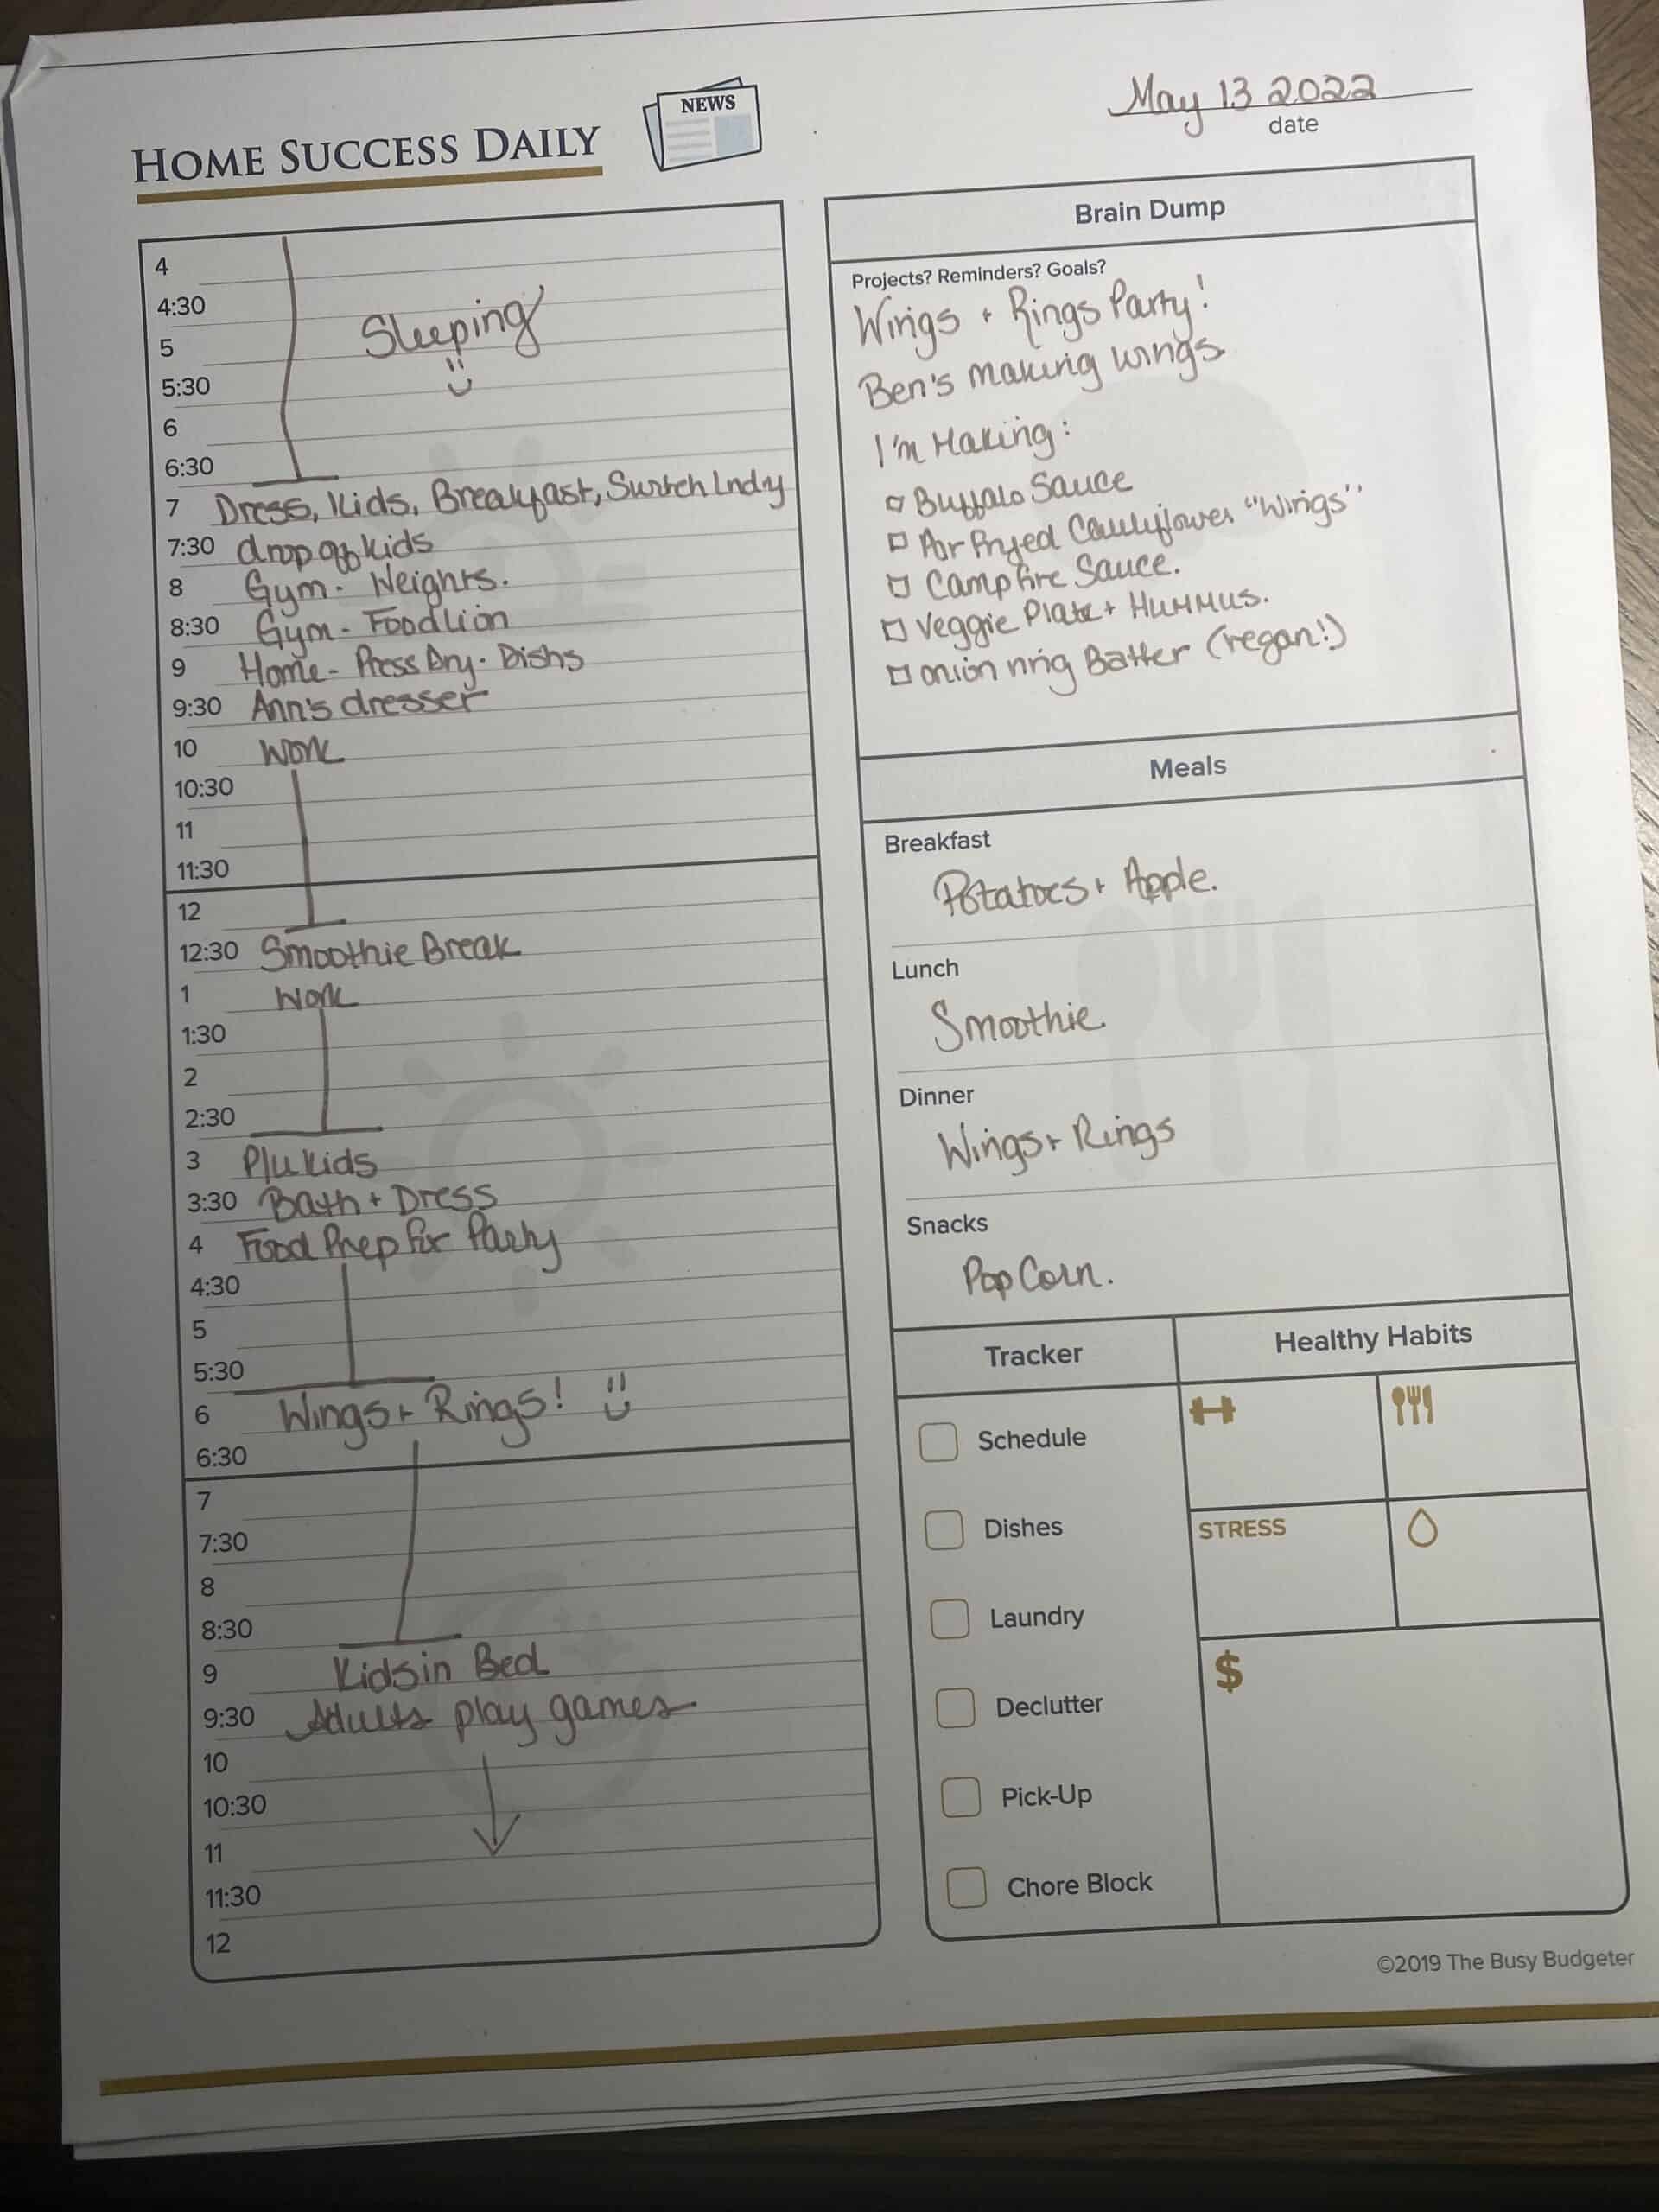 NEWS
HOME SUCCESS DAILY
May 13 2022
date
4
4:30
Sleeping
5
5:30
6
6:30
7 Dress, Kids, Breakfast, Switch Lndy
7:30 drop off kids
8 Gym - Weights.
8:30 Gym - Foodlion
9 Home - Press Dry. Dishs
9:30 Ann's dresser
10 Work
10:30
11
11:30
12
12:30 Smoothie Break
1 Work
1:30
2
2:30
3 P/u kids
3:30 Bath + Dress
4 Food Prep for Party
4:30
5
5:30
6 Wings + Rings!
6:30
7
7:30
8
8:30
9 Kids in Bed
9:30 Adults play games
10
10:30
11
11:30
12
Brain Dump
Projects? Reminders? Goals?
Wings + Rings Party!
Ben's making wings
I'm Making:
Buffalo Sauce
Air Fryed Cauliflower "Wings"
Campfire Sauce.
Veggie Plate + Hummus.
onion ring Batter (vegan!)
Meals
Breakfast
Potatoes + Apple.
Lunch
Smoothie.
Dinner
Wings + Rings
Snacks
Pop Corn.
Tracker
Schedule
Dishes
Laundry
Declutter
Pick-Up
Chore Block
Healthy Habits
STRESS
$
©2019 The Busy Budgeter